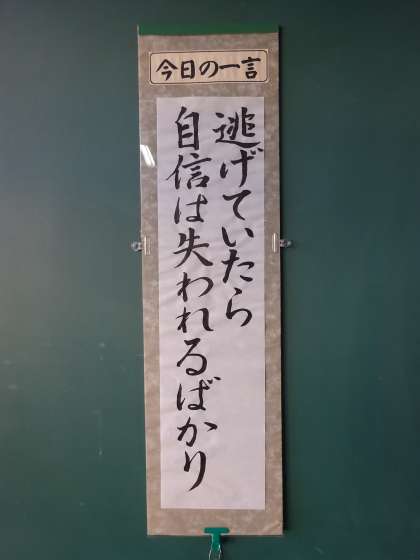 今日の一言
逃げていたら
自信は失われるばかり